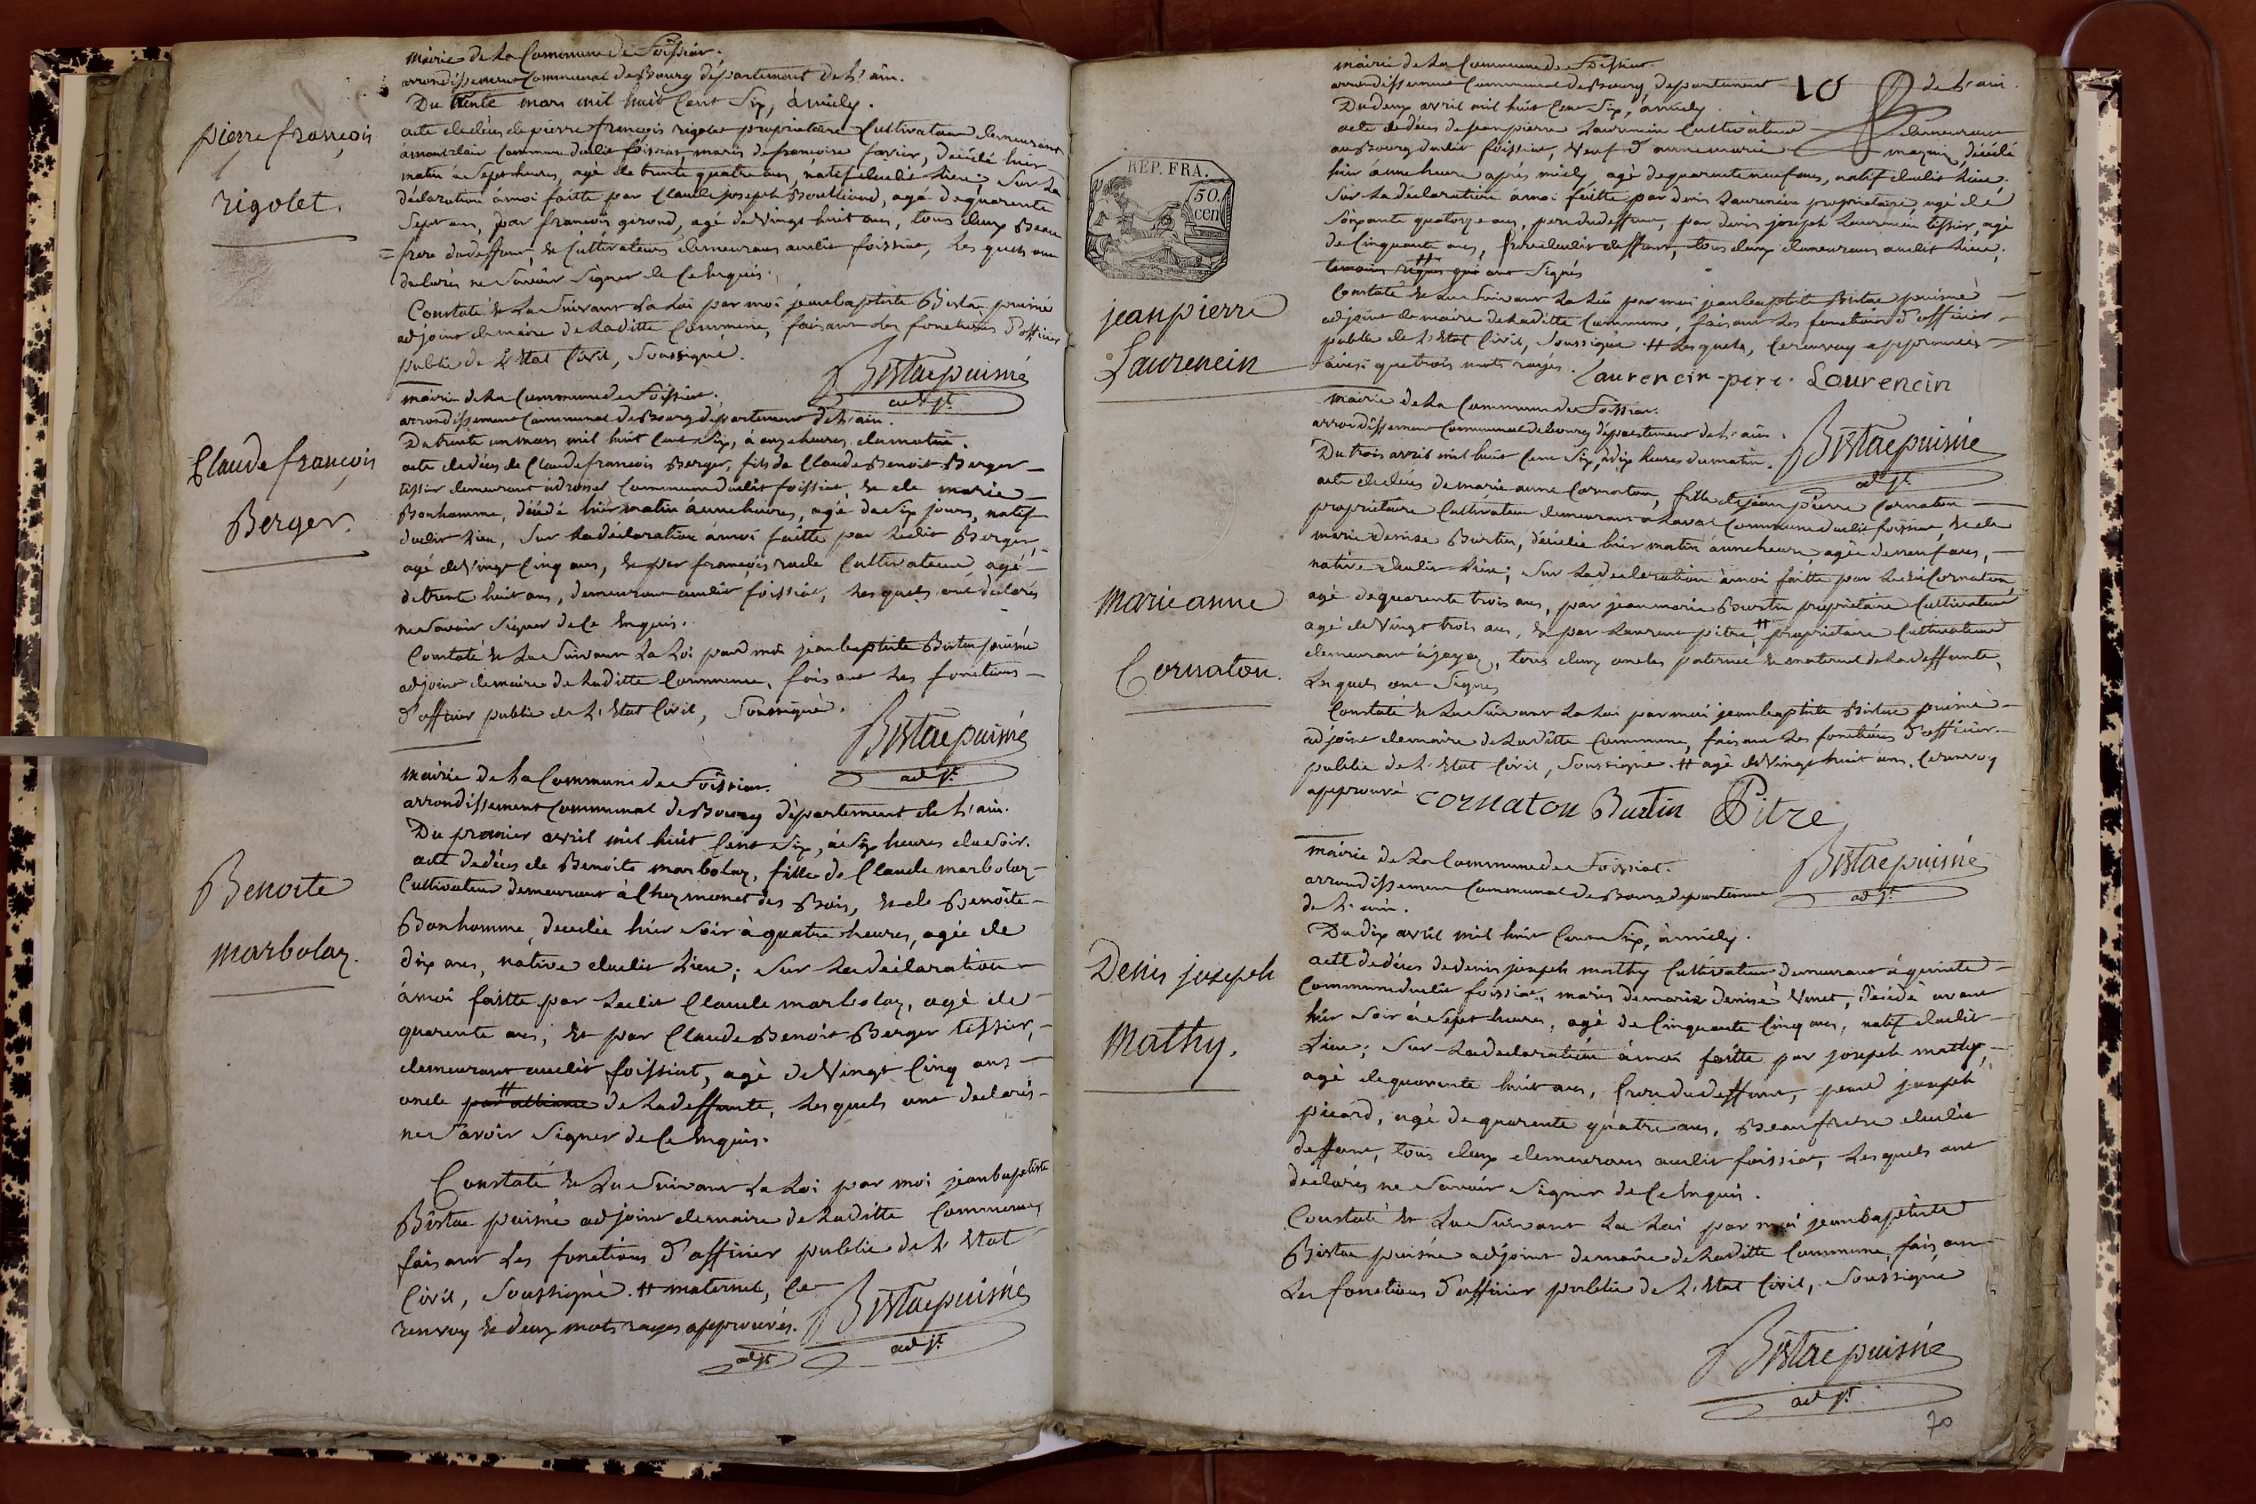 mairie de La Commune de Foissiat.
arrondissement Communal de Bourg département de L'ain.
Du trente mars mil huit Cent Six, à midy.
pierre françois
rigolet.
acte de décès de pierre françois rigolet propriétaire Cultivateur demeurant
à montclair Commune dudit foissiat, maris de françoise favier, décédé hier
matin à Sept heures, agé de trente quatre ans, natif dudit Lieu; Sur La
déclaration à moi faitte par Claude joseph Bouilloud, agé de quarente
Sept ans, par francois girond, agé de Vingt huit ans, tous deux Beau
= frere du deffunt, & Cultivateurs demeurans audit foissiat, Les quels ont
declarés ne Savoir Signer de Ce Enquis.
Constaté & Lu Suivant La Loi par moi jeanbaptiste Bistac puisné
adjoint de maire de Laditte Commune, faisant Les fonctions d'officier
public de L'Etat Civil, Soussigné.
Bistac puisné
adjt.
mairie de La Commune de Foissiat.
arrondissement Communal de Bourg département de L'ain.
Du trente un mars mil huit Cent Six, à onze heures du matin.
Claude françois
Berger.
acte de décès de Claude francois Berger, fils de Claude Benoit Berger
tissier demeurant à drosset Commune dudit foissiat, & de marie
Bonhomme, décédé hier matin à une heures, agé de Six jours, natif
dudit Lieu, Sur La déclaration à moi faitte par Ledit Berger,
agé de Vingt Cinq ans, & par françois rude Cultivateur, agé
de trente huit ans, demeurans audit foissiat, Les quels ont déclarés
ne Savoir Signer de Ce Enquis.
Constaté & Lu Suivant La Loi par moi jeanbaptiste Bistac puisné
adjoint de maire de Laditte Commune, faisant Les fonctions
d'officier public de L'Etat Civil, Soussigné.
Bistac puisné
adjt.
mairie de La Commune de Foissiat.
arrondissement Communal de Bourg département de L'ain.
Du premier avril mil huit Cent Six, à Six heures du Soir.
Benoite
marboloz.
acte de décès de Benoite marboloz, fille de Claude marboloz
Cultivateur demeurant à Chez monet des Bois, & de Benoîte
Bonhomme, décédée hier Soir à quatre heures, agée de
dix ans, native dudit Lieu; Sur La déclaration
à moi faitte par Ledit Claude marboloz, agé de
quarente ans, & par Claude Benoit Berger tissier,
demeurant audit foissiat, agé de Vingt Cinq ans
oncle par # alliance de La deffunte, Les quels ont declarés
ne Savoir Signer de Ce Enquis.
Constaté & Lu Suivant La Loi par moi jeanbaptiste
Bistac puisné adjoint de maire de Laditte Commune,
faisant Les fonctions d'officier public de L'Etat
Civil, Soussigné. # maternel, Ce
renvoy & deux mots rayes approuvés.
Bistac puisné
adjt
adjt.
mairie de La Commune de Foissiat
arrondissement Communal de Bourg, département de L'ain.
10
Du deux avril mil huit Cent Six, à midy.
REP. FRA.
50
cen
jean pierre
Laurencin
acte de décès de jean pierre Laurencin Cultivateur demeurant
au Bourg dudit foissiat, Veuf d'anne marie mazuir, décédé
hier à une heure après midy, agé de quarente neuf ans, natif dudit Lieu.
Sur La déclaration à moi faitte par denis Laurencin propriétaire agé de
Soixante quatorze ans, pere du deffunt, par denis joseph Laurencin tissier, agé
de Cinquante ans, frere dudit deffunt, tous deux demeurans audit Lieu,
temoins requis # qui ont Signés
Constaté & Lu Suivant La Loi par moi jeanbaptiste Bistac puisné
adjoint de maire de Laditte Commune, faisant Les fonctions d'officier
public de L'Etat Civil, Soussigné. # Les quels, Ce renvoy approuvés
ainsi que trois mots rayés.
Laurencin-pere. Laurencin
Bistac puisné
adjt.
mairie de La Commune de Foissiat.
arrondissement Communal de bourg département de L'ain.
Du trois avril mil huit Cent Six, à dix heures du matin.
marie anne
Cornaton.
acte de décès de marie anne Cornaton, fille de jean pierre Cornaton
propriétaire Cultivateur demeurant à Lavat Commune dudit foissiat, & de
marie denise Burtin, décédée hier matin à une heure, agée de neuf ans,
native dudit Lieu; Sur La déclaration à moi faitte par Ledit Cornaton,
agé de quarente trois ans, par jean marie Burtin propriétaire Cultivateur
agé de Vingt trois ans, & par Laurent pitre # propriétaire Cultivateur
demeurant à jayaz, tous deux oncles paternel & maternel de La deffunte,
Les quels ont Signés
Constaté & Lu Suivant La Loi par moi jeanbaptiste Bistac puisné
adjoint de maire de Laditte Commune, faisant Les fonctions d'officier
public de L'Etat Civil, Soussigné. # agé de Vingt huit ans, Ce renvoy
approuvé
cornaton Burtin Pitre
Bistac puisné
adjt.
mairie de La Commune de Foissiat.
arrondissement Communal de Bourg departement
de L'ain.
Du dix avril mil huit Cent Six, à midy.
Denis joseph
Mathy.
acte de décès de denis joseph mathy Cultivateur demeurant à
Commune dudit foissiat, maris de marie denise Venet, décédé avant
hier Soir à Sept heures, agé de Cinquante Cinq ans, natif dudit
Lieu; Sur La declaration à moi faitte par joseph mathy,
agé de quarente huit ans, frere du deffunt, par joseph
picard, agé de quarente quatre ans, Beaufrere dudit
deffunt, tous deux demeurans audit foissiat, Les quels ont
declarés ne Savoir Signer de Ce Enquis.
Constaté & Lu Suivant La Loi par moi jeanbaptiste
Bistac puisné adjoint de maire de Laditte Commune, faisant
Les fonctions d'officier public de L'Etat Civil, Soussigné
Bistac puisné
adjt.
70